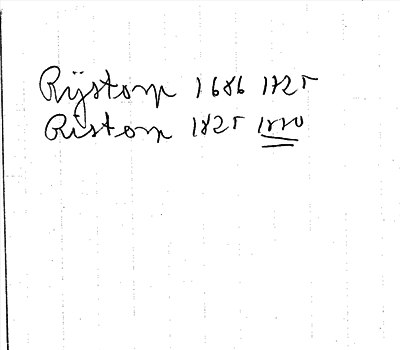 Rijstorp 1686 1825
Ristorp 1825 1880